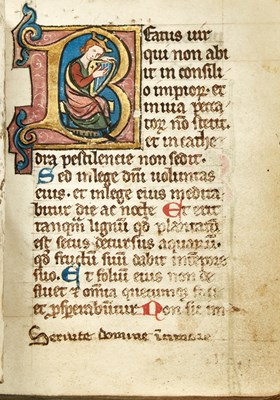 Beatus uir
qui non abi
it in consili
o impiorꝝ et
in uia pecca
torꝝ nō stetit.
et in cathe
dra pestilencie non sedit.
Sed in lege dn̄i uoluntas
eius. et in lege eius medita
bitur die ac nocte Et erit
tanqm̄ lignū qd̄ plantatū
est secus decursus aquarū
qd̄ fructū suū dabit in tempore
suo Et foliū eius non de
fluet et om̄ia quecumqꝫ faci
et ꝓsperabūtur Non sic im
Seruite domino in timore